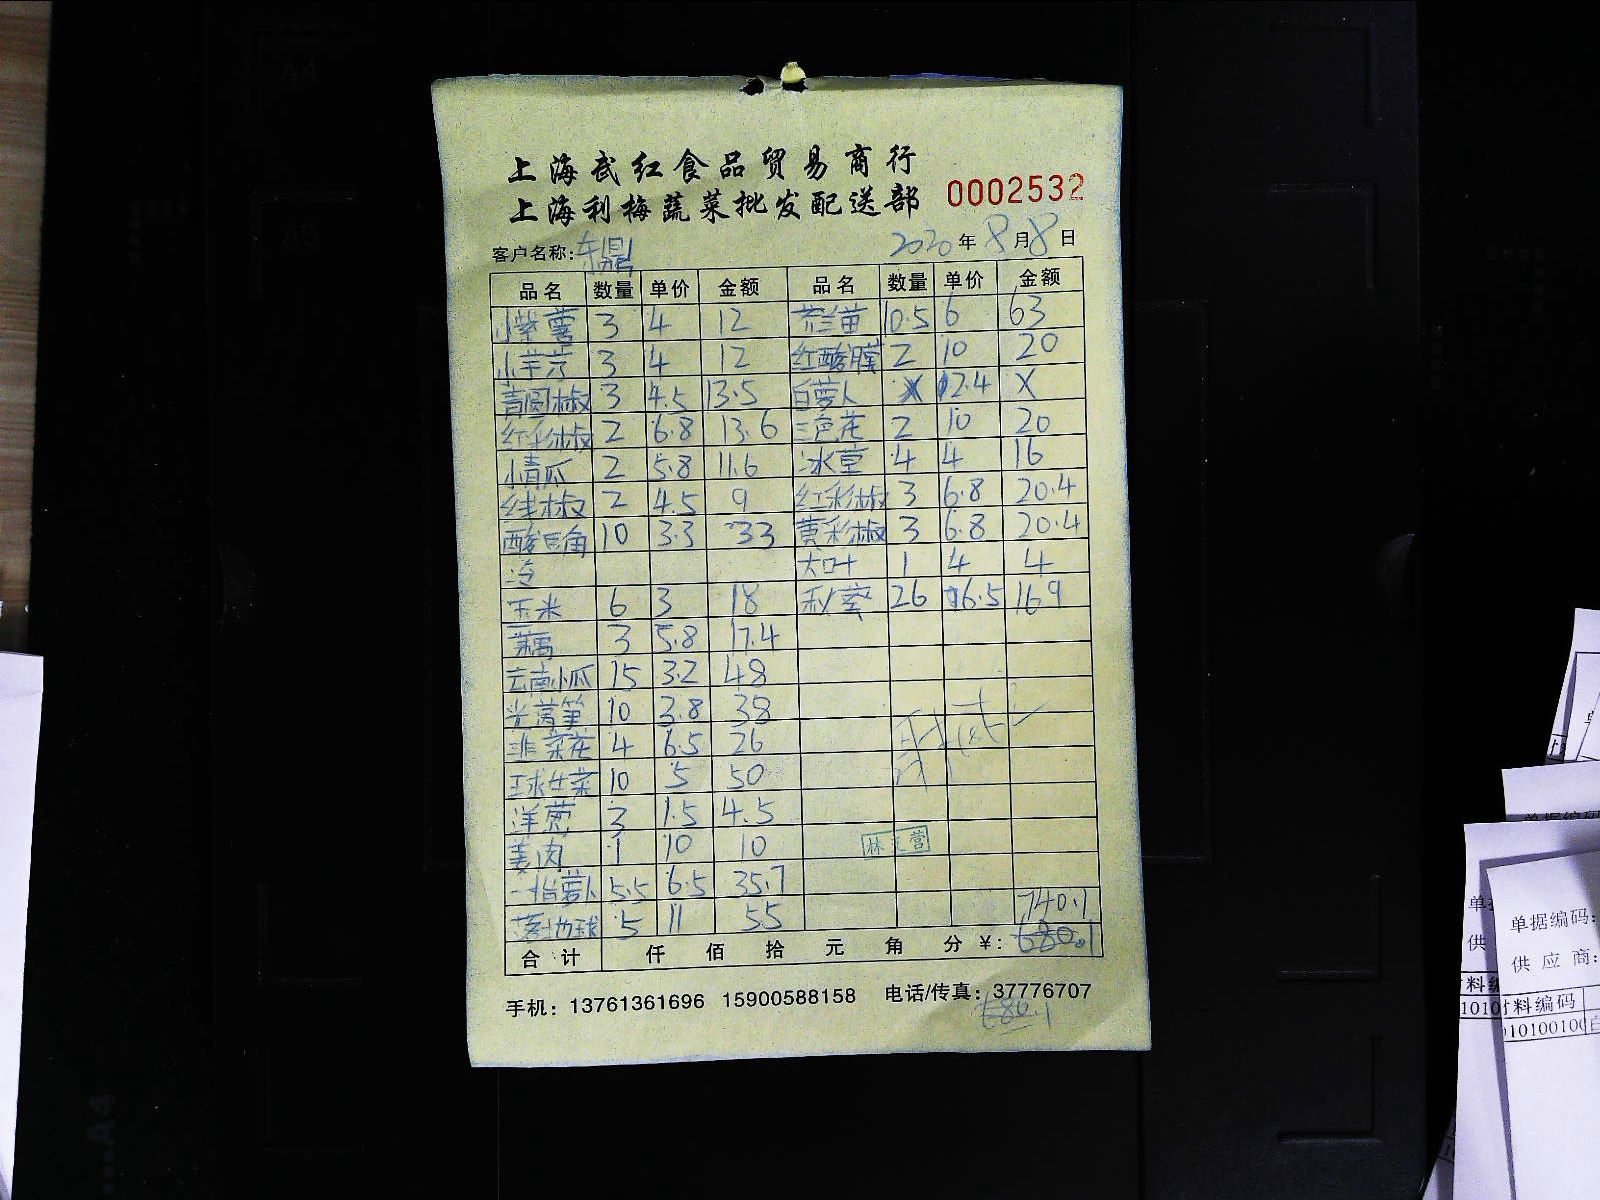 上海武红食品贸易商行
上海利梅蔬菜批发配送部 0002532
客户名称:东鼎 2020年8月8日
品名 数量 单价 金额 品名 数量 单价 金额
小紫薯 3 4 12 芥兰苗 10.5 6 63
小芋艿 3 4 12 红酸膜 2 10 20
青圆椒 3 4.5 13.5 白萝卜 2.4 X
红彩椒 2 6.8 13.6 三色花 2 10 20
小青瓜 2 5.8 11.6 冰草 4 4 16
线椒 2 4.5 9 红彩椒 3 6.8 20.4
酸豆角 10 3.3 33 黄彩椒 3 6.8 20.4
冷 大叶 1 4 4
玉米 6 3 18 秋葵 26 6.5 169
莲藕 3 5.8 17.4
云南小瓜 15 3.2 48
光莴笋 10 3.8 38
韭菜花 4 6.5 26
球生菜 10 5 50
洋葱 3 1.5 4.5
姜肉 1 10 10
一指萝卜 5.5 6.5 35.7
5 11 55
740.1
合计 仟 佰 拾 元 角 分 ¥: 680.1
手机: 13761361696 15900588158 电话/传真: 37776707
680.1
A4
A5
A4
单据编码:
供应商:
材料编码